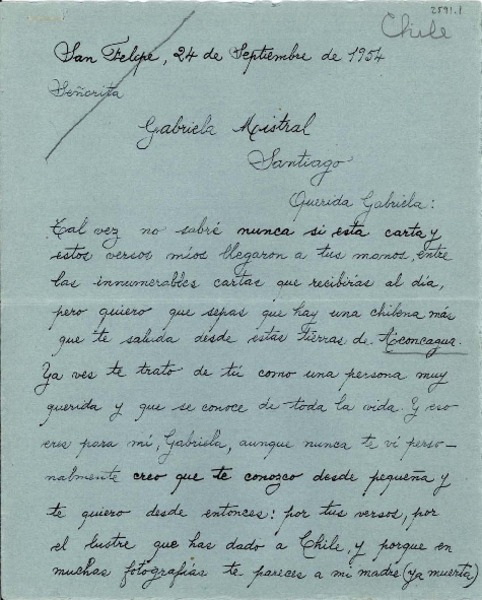 2591.1
Chile
San Felipe, 24 de Septiembre de 1954
Señorita
Gabriela Mistral
Santiago
Querida Gabriela:
Tal vez no sabré nunca si esta carta y
estos versos míos llegaron a tus manos, entre
las innumerables cartas que recibirás al día,
pero quiero que sepas que hay una chilena más
que te saluda desde estas Tierras de Aconcagua.
Ya ves te trato de tú como una persona muy
querida y que se conoce de toda la vida. Y eso
eres para mí, Gabriela, aunque nunca te vi perso-
nalmente creo que te conozco desde pequeña y
te quiero desde entonces: por tus versos, por
el lustre que has dado a Chile, y porque en
muchas fotografías te pareces a mi madre (ya muerta)